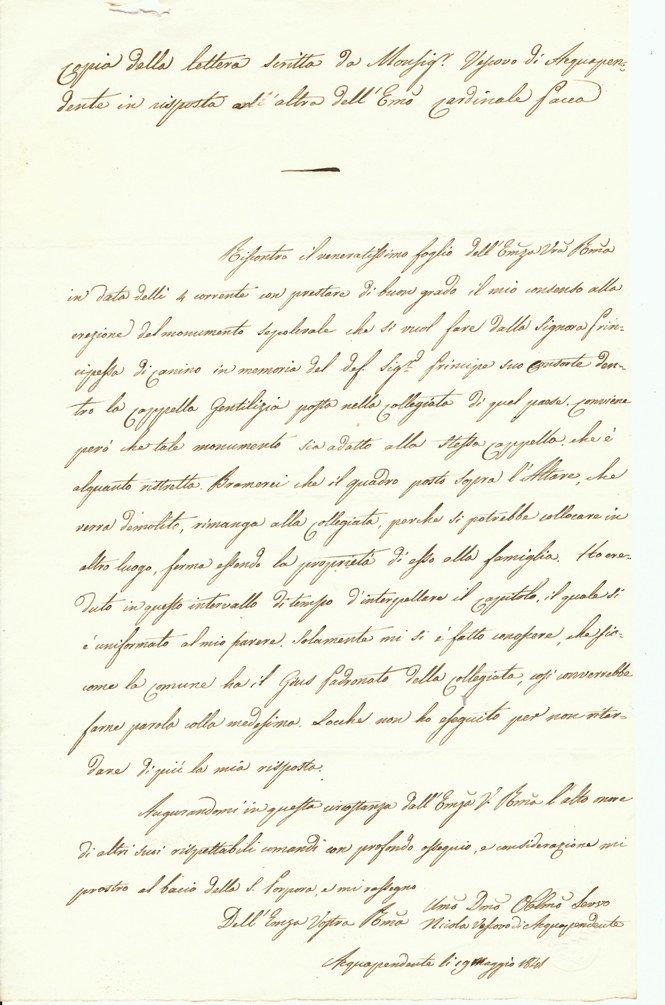 Copia della lettera scritta da Monsigr. Vescovo di Acquapen-
dente in risposta all'altra dell'Emo Cardinale Pacca
Riscontro il veneratissimo foglio dell'Emza Vra Rma
in data delli 4 corrente con prestare di buon grado il mio consenso alla
erezione del monumento sepolcrale che si vuol fare dalla Signora Prin-
cipessa di Canino in memoria del def. Sigr. Principe suo consorte den-
tro la Cappella Gentilizia posta nella Collegiata di quel paese. Conviene
però che tale monumento sia adatto alla stessa Cappella, che è
alquanto ristretta. Bramerei che il quadro posto sopra l'Altare, che
verrà demolito, rimanga alla Collegiata, perche si potrebbe collocare in
altro luogo, ferma essendo la proprietà di esso alla famiglia. Ho cre-
duto in questo intervallo di tempo d'interpellare il Capitolo, il quale si
è uniformato al mio parere. Solamente mi si è fatto conoscere, che sic-
come la Comune ha il Gius Padronato della Collegiata, così converrebbe
farne parola colla medesima. Locche non ho eseguito per non ritar-
dare di più la mia risposta.
Augurandomi in questa circostanza dall'Emza V. Rma l'alto onore
di altri suoi rispettabili comandi con profondo ossequio, e considerazione mi
prostro al bacio della S. Porpora, e mi rassegno
Dell'Emza Vostra Rma
Umo Dmo Obblmo Servo
Nicola Vescovo di Acquapendente
Acquapendente li 19 Maggio 1841